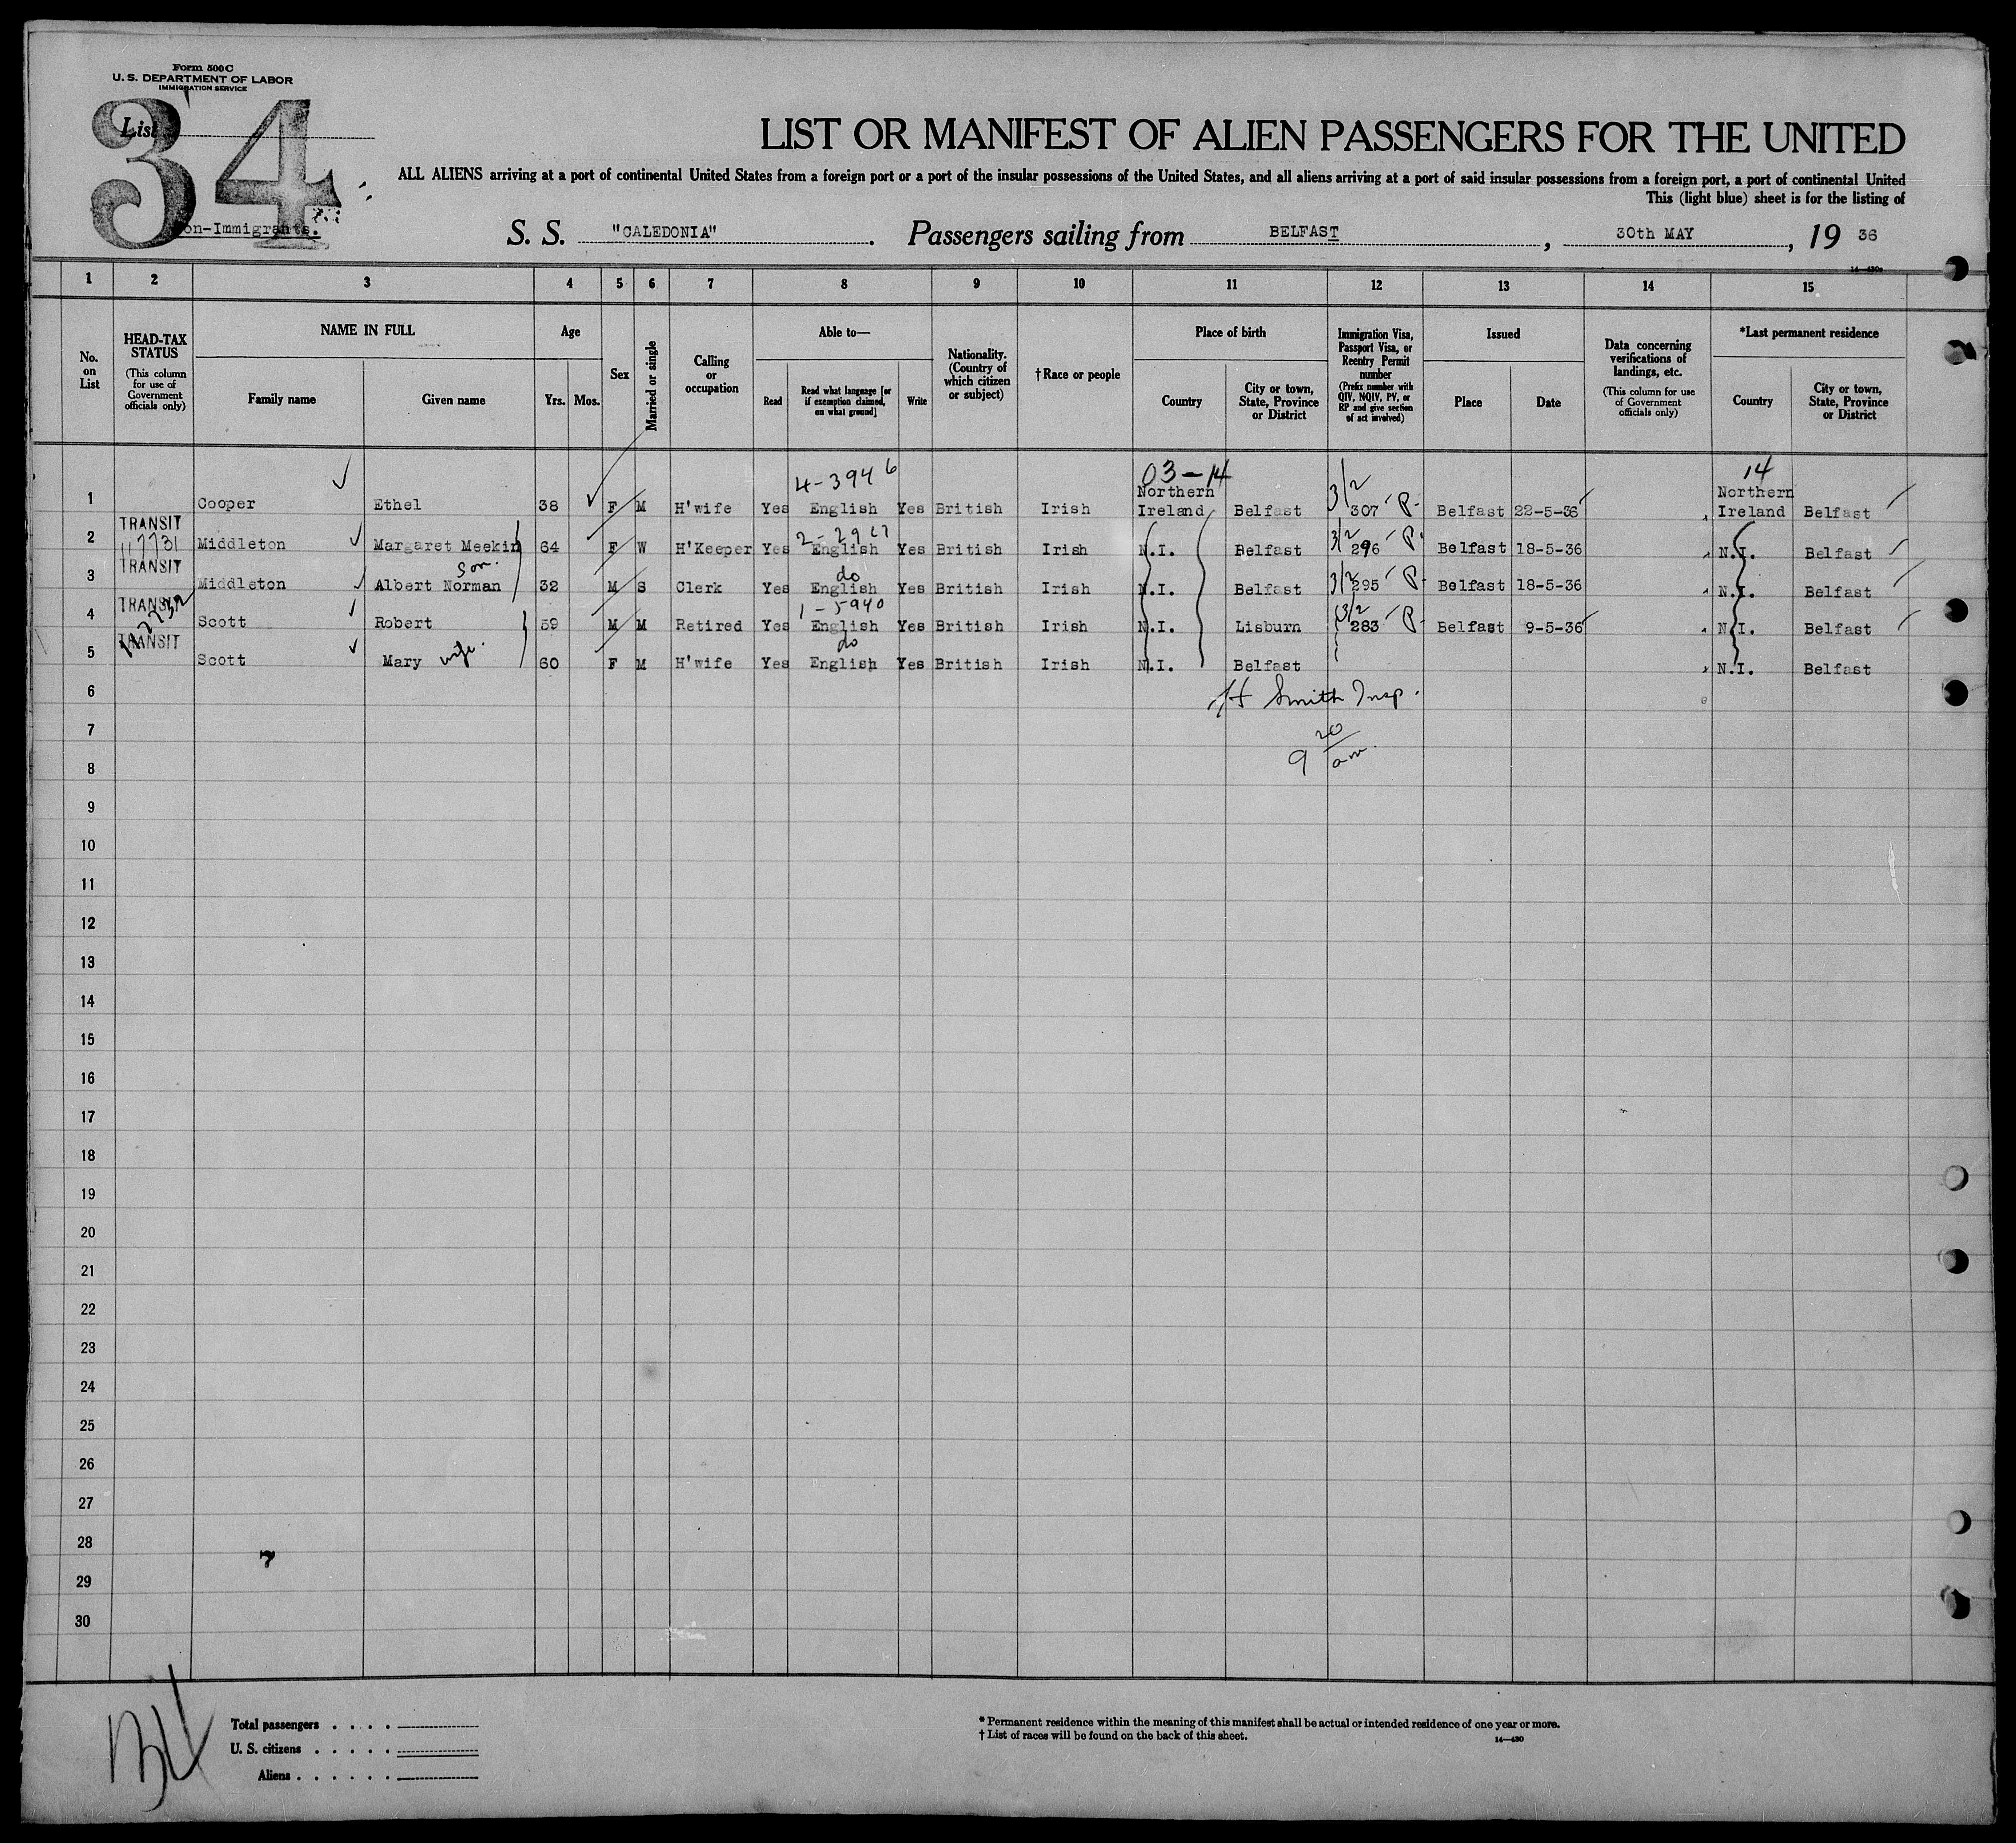 Form 500 C
U. S. DEPARTMENT OF LABOR
IMMIGRATION SERVICE
List
34
LIST OR MANIFEST OF ALIEN PASSENGERS FOR THE UNITED
ALL ALIENS arriving at a port of continental United States from a foreign port or a port of the insular possessions of the United States, and all aliens arriving at a port of said insular possessions from a foreign port, a port of continental United
This (light blue) sheet is for the listing of
on-Immigrants.
S. S. "CALEDONIA". Passengers sailing from BELFAST, 30th MAY, 19 36
14—430a
1 2 3 4 5 6 7 8 9 10 11 12 13 14 15
No. on List
HEAD-TAX STATUS
(This column for use of Government officials only)
NAME IN FULL
Family name
Given name
Age
Yrs. Mos.
Sex
Married or single
Calling or occupation
Able to—
Read
Read what language [or if exemption claimed, on what ground]
Write
Nationality. (Country of which citizen or subject)
†Race or people
Place of birth
Country
City or town, State, Province or District
Immigration Visa, Passport Visa, or Reentry Permit number
(Prefix number with QIV, NQIV, PV, or RP and give section of act involved)
Issued
Place
Date
Data concerning verifications of landings, etc.
(This column for use of Government officials only)
*Last permanent residence
Country
City or town, State, Province or District
4-3946 03-14 3/2 14
1 Cooper Ethel 38 F M H'wife Yes English Yes British Irish Northern Ireland Belfast 307 P- Belfast 22-5-36 Northern Ireland Belfast
TRANSIT
117731
2 Middleton Margaret Meekin 64 F W H'Keeper Yes English Yes British Irish N.I. Belfast 3/2 296 P- Belfast 18-5-36 N.I. Belfast
TRANSIT son. do
3 Middleton Albert Norman 32 M S Clerk Yes English Yes British Irish N.I. Belfast 3/2 295 P- Belfast 18-5-36 N.I. Belfast
TRANSIT 1-5940
4 Scott Robert 59 M M Retired Yes English Yes British Irish N.I. Lisburn 3/2 283 P- Belfast 9-5-36 N.I. Belfast
TRANSIT do
5 Scott Mary wife. 60 F M H'wife Yes English Yes British Irish N.I. Belfast N.I. Belfast
6 Smith Insp.
7
9 20 am.
8
9
10
11
12
13
14
15
16
17
18
19
20
21
22
23
24
25
26
27
28
29
30
Total passengers
U. S. citizens
Aliens
* Permanent residence within the meaning of this manifest shall be actual or intended residence of one year or more.
† List of races will be found on the back of this sheet.
14—430